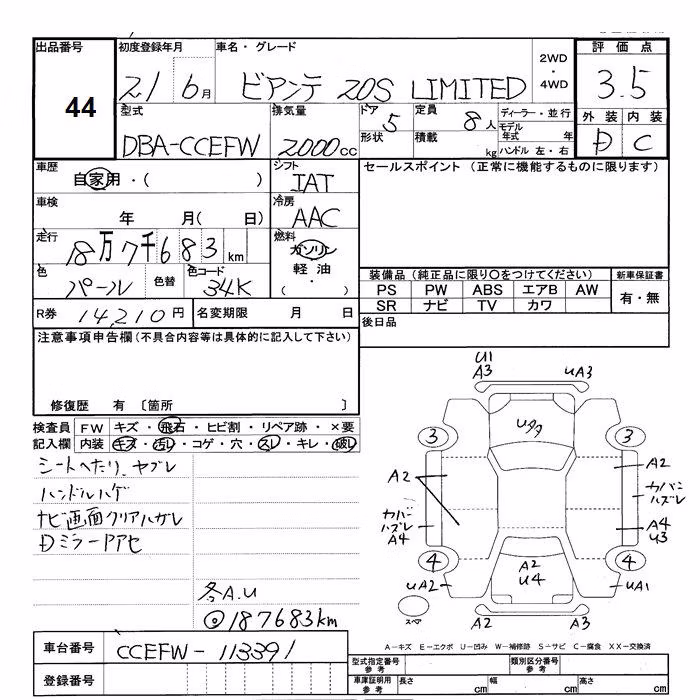 出品番号 初度登録年月 車名・グレード 2WD・4WD 評価点
44 21 6月 ビアンテ 20S LIMITED 3.5
型式 排気量 ドア 5 定員 8人 ディーラー・並行 外装 内装
DBA-CCEFW 2000cc 形状 積載 kg モデル年式 年 D C
ハンドル 左・右
車歴 自家用・( ) シフト IAT セールスポイント (正常に機能するものに限ります)
車検 年 月( 日) 冷房 AAC
走行 18万7千683km 燃料 ガソリン
軽油
・( )
色 パール 色替 色コード 34K 装備品 (純正品に限り○をつけてください) 新車保証書
PS PW ABS エアB AW 有・無
SR ナビ TV カワ
R券 14,210円 名変期限 月 日 後日品
注意事項申告欄(不具合内容等は具体的に記入して下さい)
修復歴 有 〔箇所 〕
検査員 FW キズ・飛石・ヒビ割・リペア跡・×要
記入欄 内装 キズ・汚レ・コゲ・穴・スレ・キレ・破レ
シートへたり、ヤブレ
ハンドルハゲ
ナビ画面クリアハガレ
Dミラーアアセ
各A.U
◎187683km
U1
A3 UA3
Uタタ
3 3
A2 A2
カバーハズレ カバーハズレ
A4 A4
U3
4 4
A2
U4
UA2 UA1
スペア A2 A3
A-キズ E-エクボ U-凹み W-補修跡 S-サビ C-腐食 XX-交換済
車台番号 CCEFW-113391
登録番号
型式指定番号 参考 類別区分番号 参考
車庫証明用 参考 長さ cm 幅 cm 高さ cm